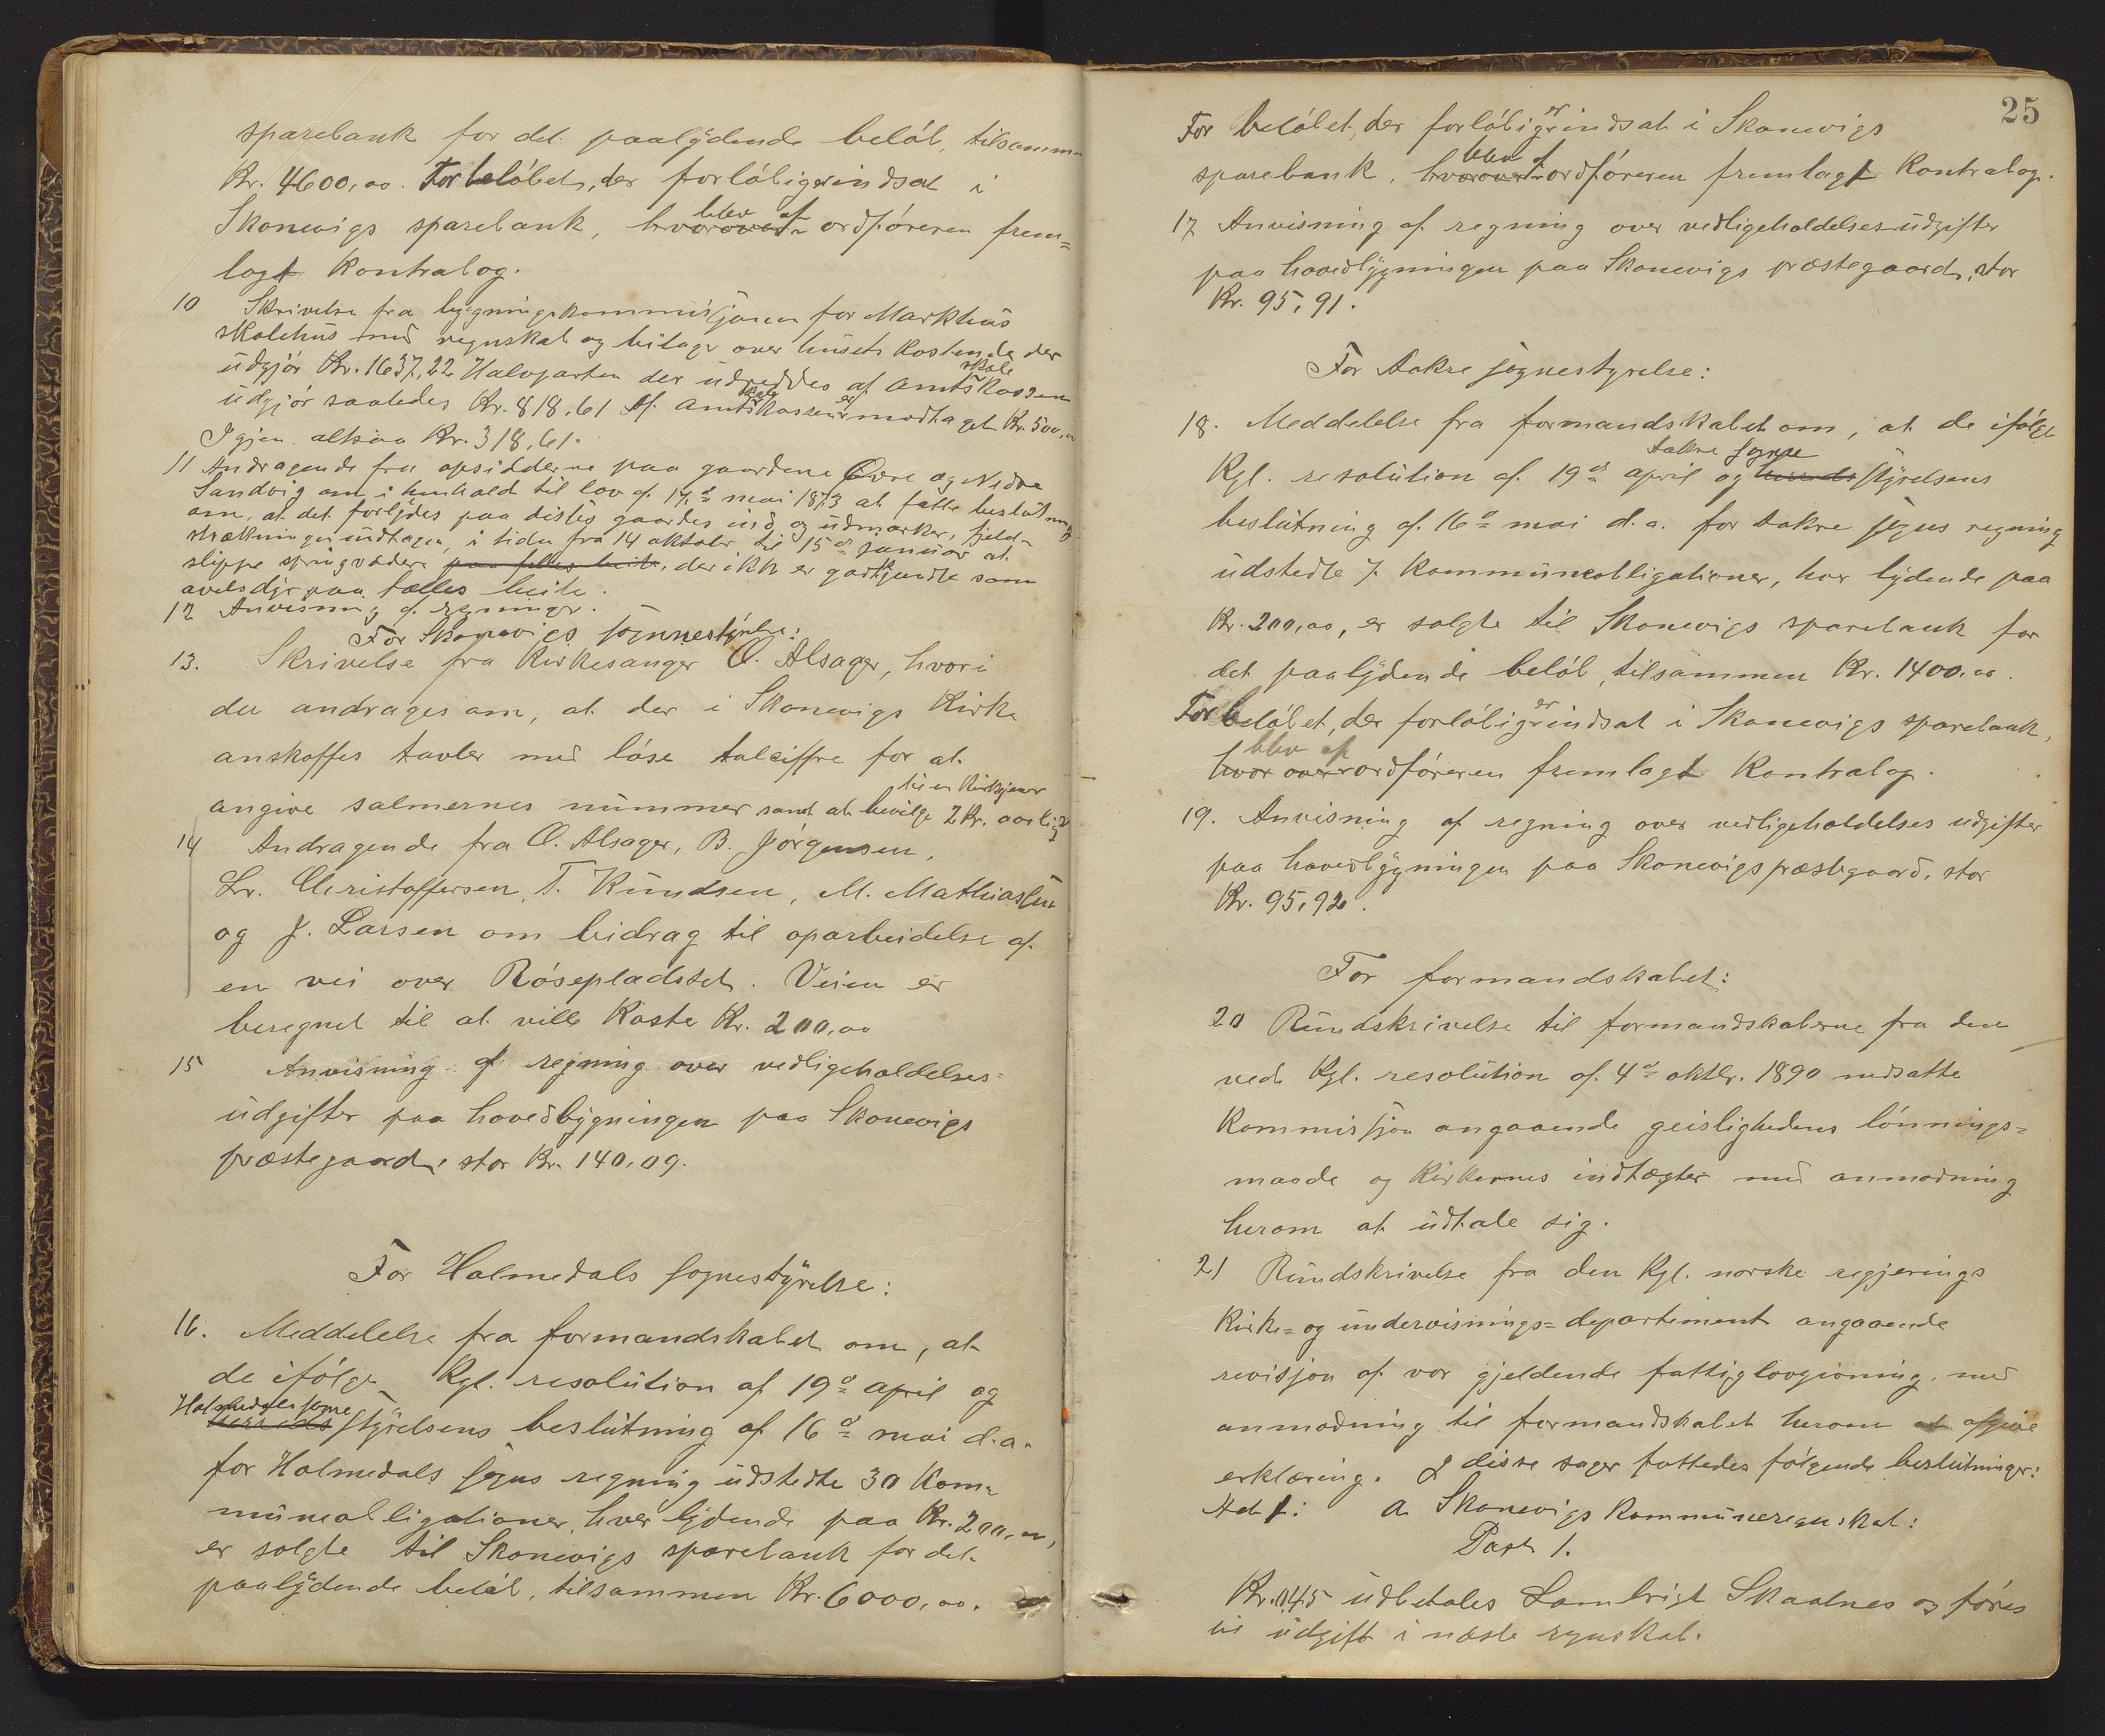 sparebank for det paalydende beløb, tilsammen
Kr. 4600,00. For beløbet, der forløbig er indsat i
Skonevigs sparebank, hvorover blev af ordføreren frem=
lagt Kontrabog.
10 Skrivelse fra bygningskommissjonen for Markhus
skolehus med regnskab og bilage over husets kostende der
udgjør Kr. 1637,22 Halvparten der udreddes af amtsskolekassen
udgjør saaledes Kr. 818,61 Af amtsskolekassen er modtaget Kr. 500,00
Igjen altsaa Kr. 318,61.
11 Andragende fra opsidderne paa gaardene Øvre og Nedre
Sandvig om i henhold til lov af 17de mai 1873 at fatte beslutning
om, at det forbydes paa disses gaardes ind og udmarker, fjeld=
strækninger undtagen, i tiden fra 14 oktober til 15de januar at
slippe springvædere paa fælles beite, der ikke er godkjendte som
avlsdyr paa fælles beite.
12 Anvisning af regninger.
For Skonevigs sognestyrelse:
13. Skrivelse fra Kirkesanger O. Alsager, hvori
der andrages om, at der i Skonevigs Kirke
anskaffes tavler med løse talciffre for at
angive salmernes nummer samt at bevilge til en Kirketjener 2 Kr. aarlig
14 Andragende fra O. Alsager, B. Jørgensen,
Lr. Christoffersen, T. Knudsen, M. Mathiassen
og J. Larsen om bidrag til oparbeidelse af
en vei over Røsepladset. Veien er
beregnet til at ville Koste Kr. 200,00
15 Anvisning af regning over vedligeholdelses=
udgifter paa hovedbygningen paa Skonevigs
præstegaard, stor Kr. 140,09.
For Holmedals sognestyrelse:
16. Meddelelse fra formandskabet om, at
de ifølge Kgl. resolution af 19de april og
Holmedals sogne
herredsstyrelsens beslutning af 16de mai d.a.
for Holmedals sogns regning udstedte 30 Kom=
muneobligationer, hver lydende paa Kr. 200,00,
er solgte til Skonevigs sparebank for det
paalydende beløb, tilsammen Kr. 6000,00.
25
For beløbet, der forløbig er indsat i Skonevigs
sparebank, hvorover blev af ordføreren fremlagt Kontrabog.
17 Anvisning af regning over vedligeholdelsesudgifter
paa hovedbygningen paa Skonevigs præstegaard, stor
Kr. 95,91.
For Aakre sognestyrelse:
18. Meddelelse fra formandskabet om, at de ifølge
Aakre sogne
Kgl. resolution af 19de april og herredsstyrelsens
beslutning af 16de mai d.a. for Aakre sogns regning
udstedte 7 Kommuneobligationer, hver lydende paa
Kr. 200,00, er solgte til Skonevigs sparebank for
det paalydende beløb, tilsammen Kr. 1400,00.
For beløbet, der forløbig er indsat i Skonevigs sparebank,
hvorover blev af ordføreren fremlagt Kontrabog.
19. Anvisning af regning over vedligeholdelses udgifter
paa hovedbygningen paa Skonevigs præstegaard, stor
Kr. 95,92.
For formandskabet:
20 Rundskrivelse til formandskaberne fra den
ved Kgl. resolution af 4de oktbr. 1890 nedsatte
Kommissjon angaaende geistlighedens lønnings=
maade og Kirkernes indtægter med anmodning
herom at udtale sig.
21 Rundskrivelse fra den Kgl. norske regjerings
Kirke= og undervisnings=departement angaaende
revisjon af vor gjeldende fattiglovgivning, med
anmodning til formandskabet herom at afgive
erklæring. I disse sager fattedes følgende beslutninger:
Ad 1: a Skonevigs Kommuneregnskab:
Post 1.
Kr. 0,45 udbetales Lambrigt Skaalnes og føres
til udgift i næste regnskab.